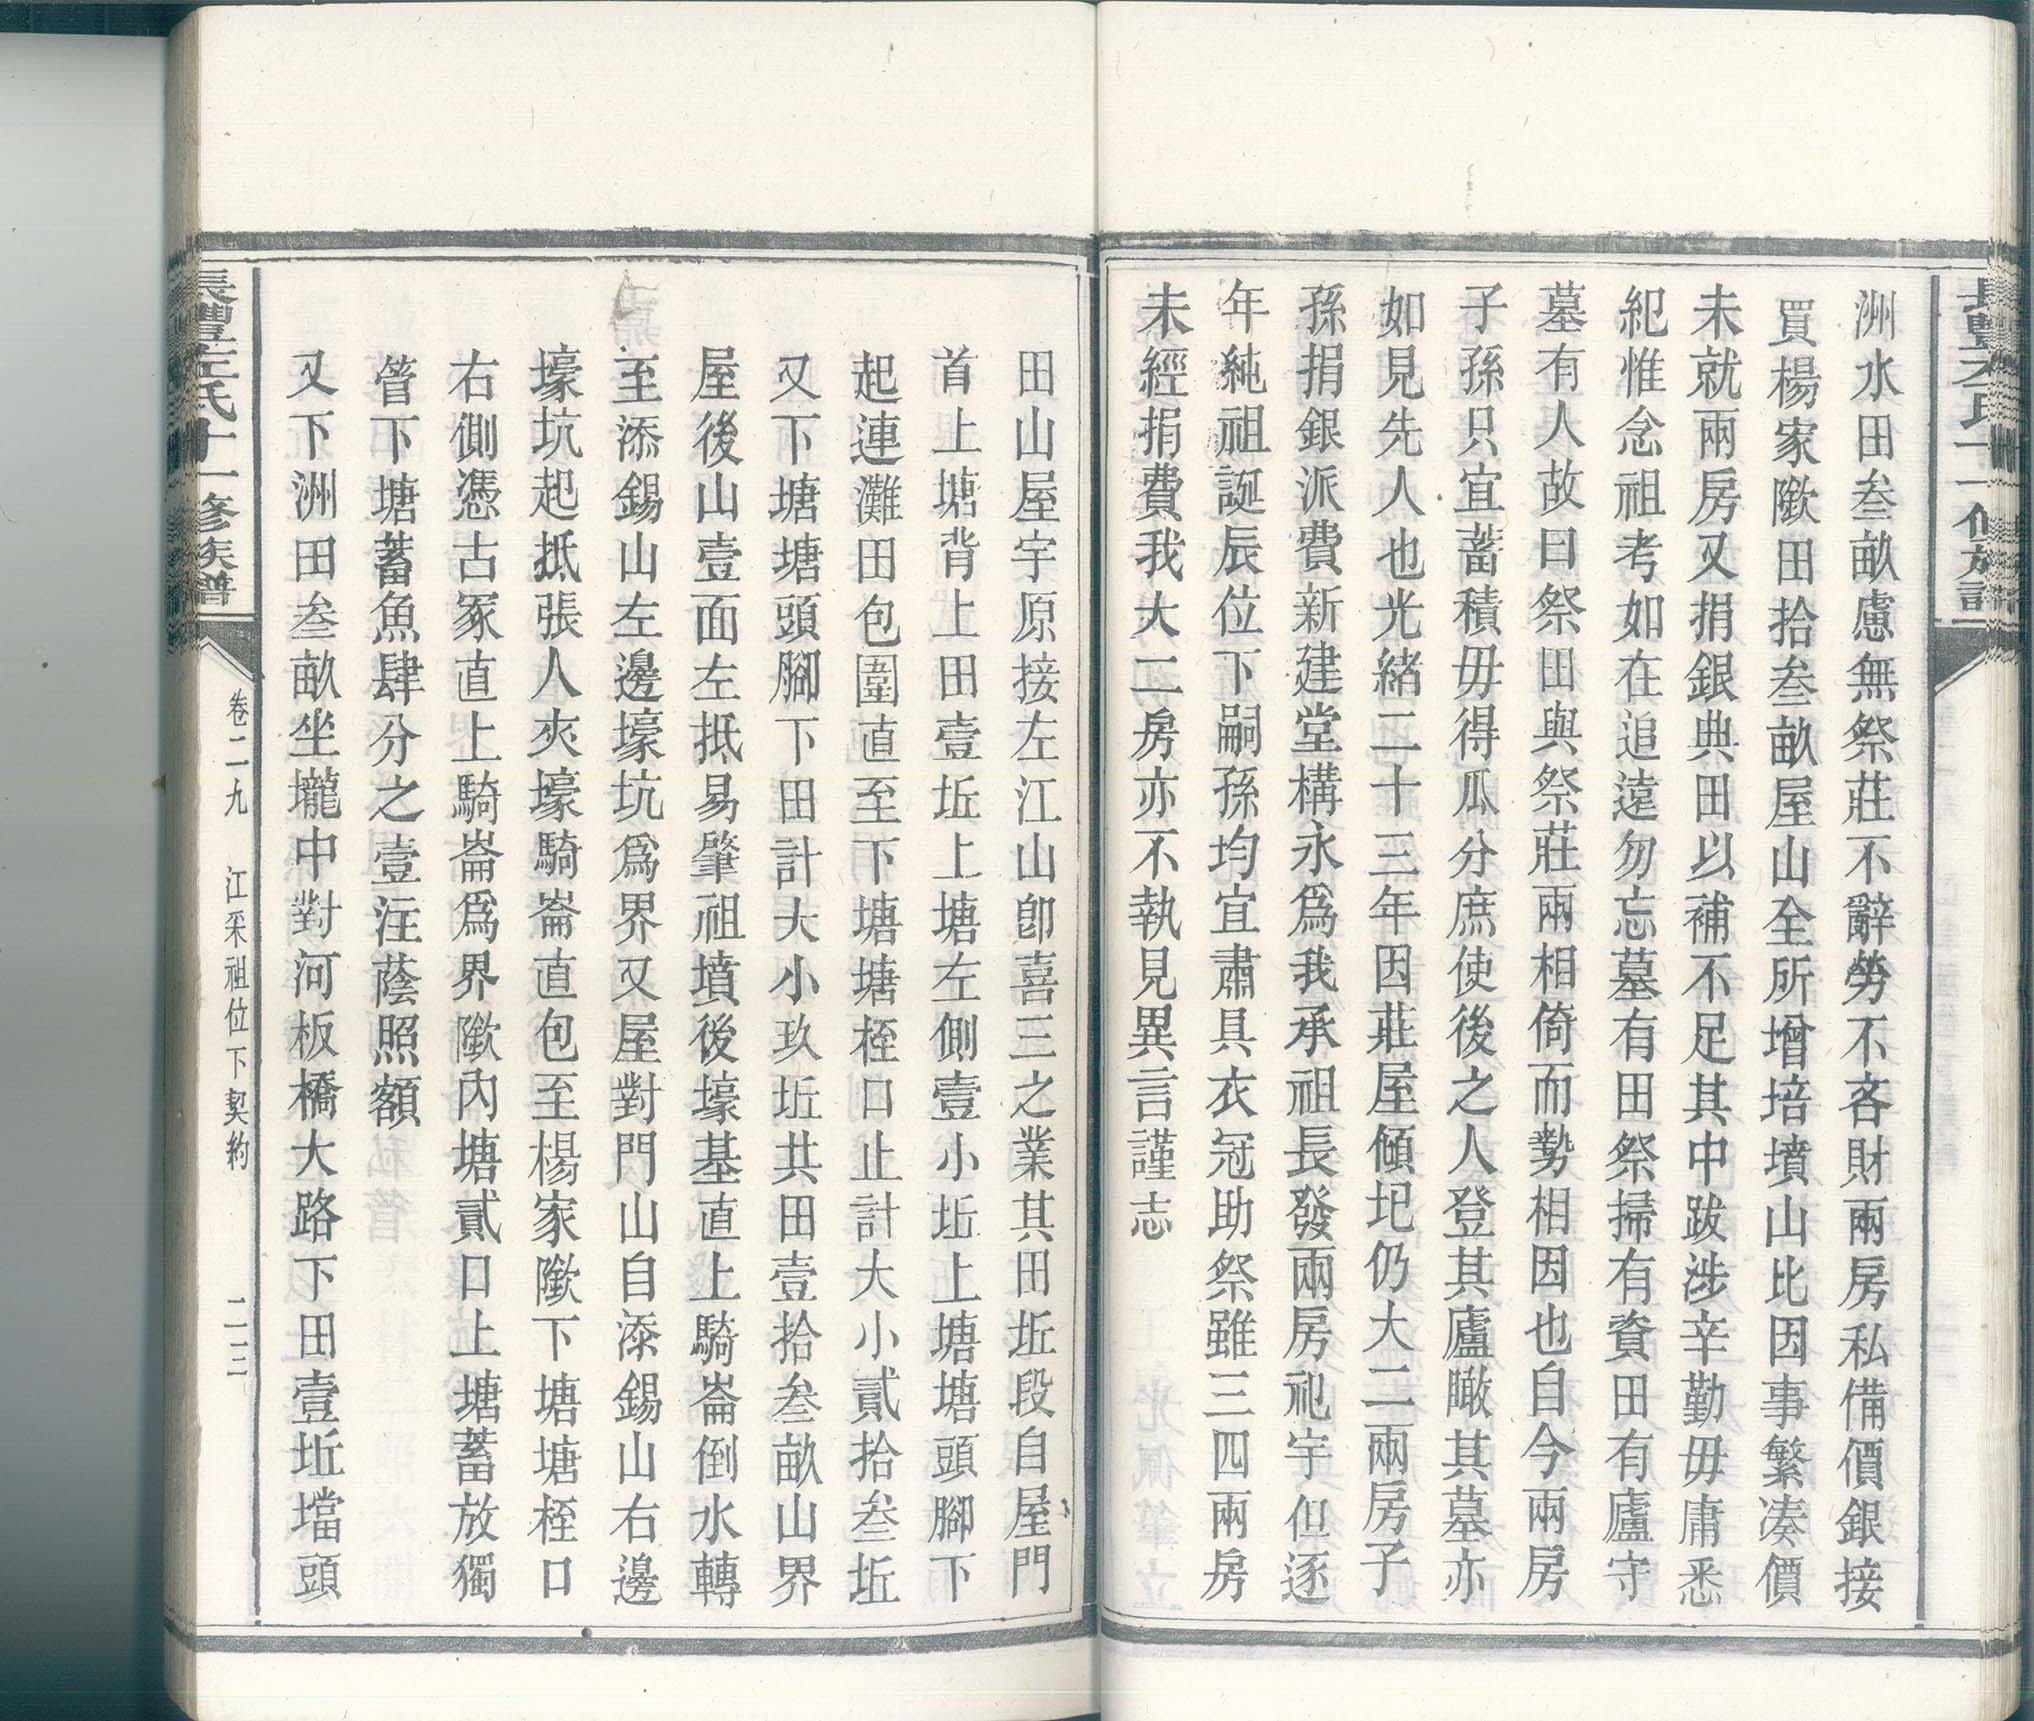 洲水田叁畝慮無祭莊不辭勞不吝財兩房私備價銀接
買楊家隞田拾叁畝屋山全所增培墳山比因事繁湊價
未就兩房又捐銀典田以補不足其中跋涉辛勤毋庸悉
紀惟念祖考如在追遠勿忘墓有田祭掃有資田有廬守
墓有人故曰祭田與祭莊兩相倚而勢相因也自今兩房
子孫只宜蓄積毋得瓜分庶使後之人登其廬瞰其墓亦
如見先人也光緒二十三年因莊屋傾圮仍大二兩房子
孫捐銀派費新建堂構永爲我承祖長發兩房祀宇但逐
年純祖誕辰位下嗣孫均宜肅具衣冠助祭雖三四兩房
未經捐費我大二房亦不執見異言謹志
田山屋宇原接左江山卽喜三之業其田坵段自屋門
首上塘背上田壹坵上塘左側壹小坵上塘塘頭腳下
起連灘田包圍直至下塘塘桎口止計大小貳拾叁坵
又下塘塘頭腳下田計大小玖坵共田壹拾叁畝山界
屋後山壹面左抵易肇祖墳後壕基直上騎崙倒水轉
至添錫山左邊壕坑爲界又屋對門山自添錫山右邊
壕坑起抵張人夾壕騎崙直包至楊家隞下塘塘桎口
右側憑古冢直上騎崙爲界隞內塘貳口上塘蓄放獨
管下塘蓄魚肆分之壹注蔭照額
又下洲田叁畝坐壠中對河板橋大路下田壹坵壋頭
長豐左氏十一修族譜
卷二九 江采祖位下契約 二三